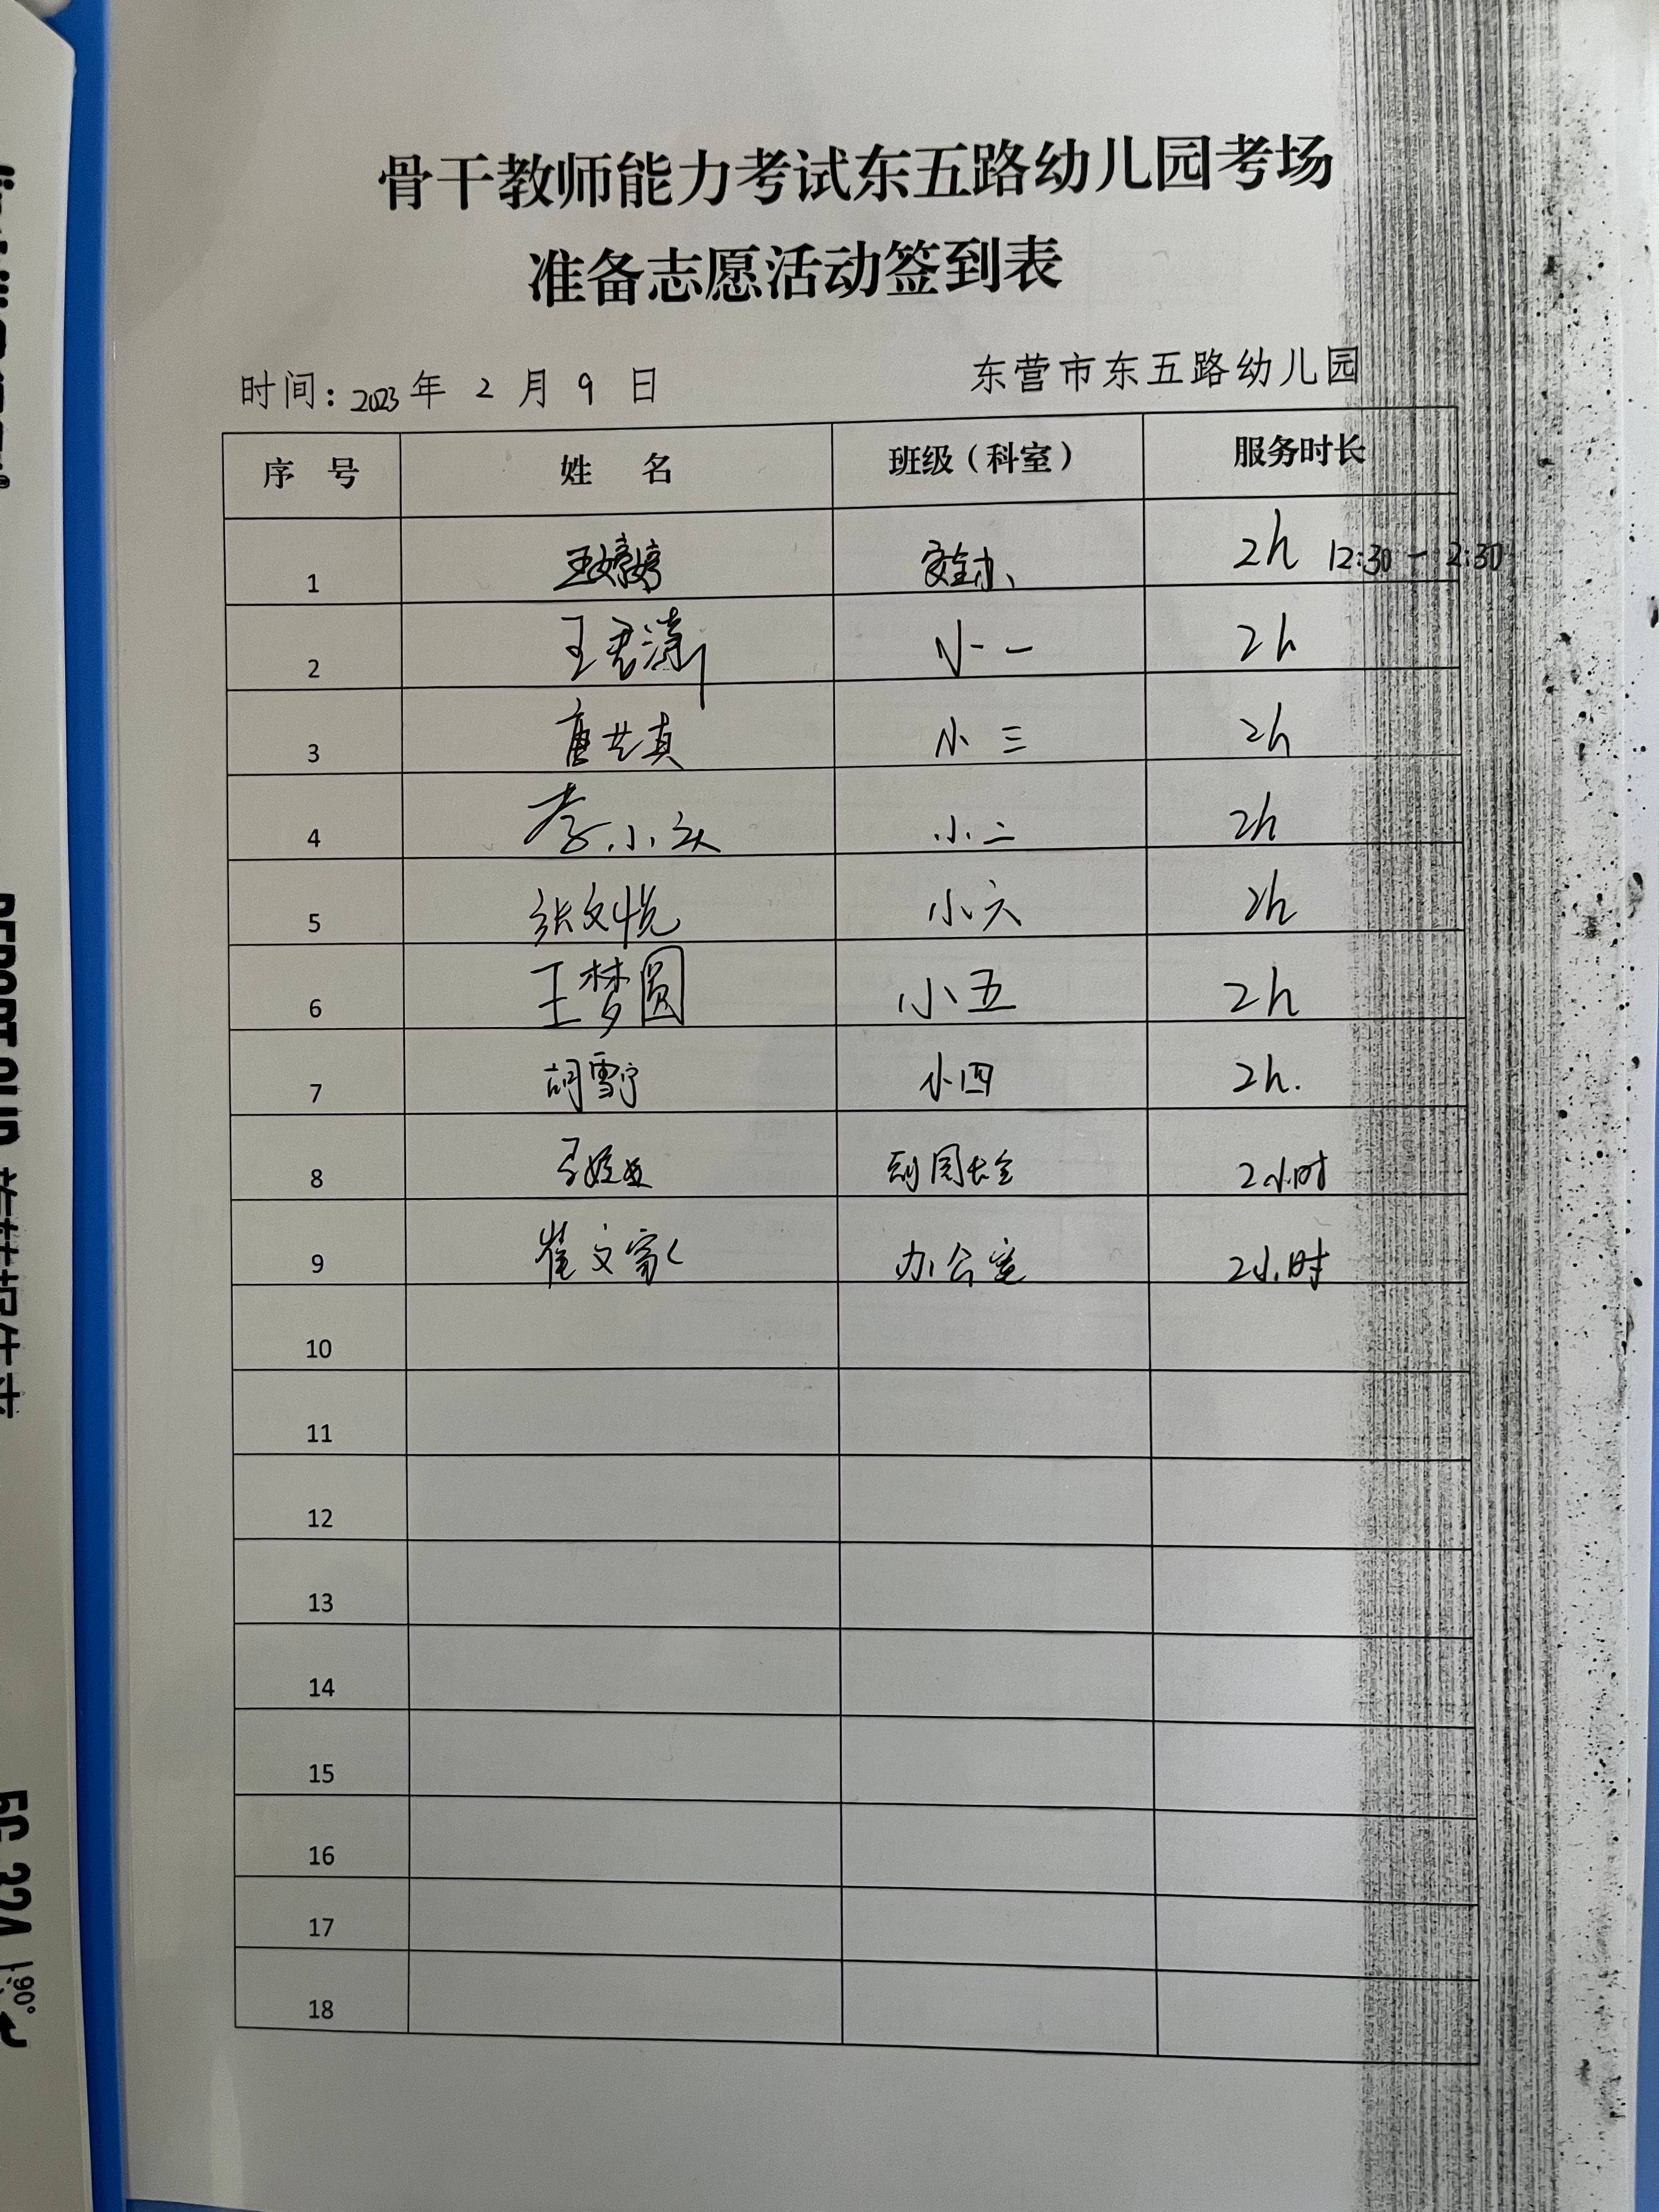 骨干教师能力考试东五路幼儿园考场
准备志愿活动签到表
时间：2023年 2 月 9 日 东营市东五路幼儿园
序 号 姓 名 班级（科室） 服务时长
1 王婷婷 安全办 2h 12:30-2:30
2 王君潇 小一 2h
3 唐艺真 小三 2h
4 李小 小二 2h
5 张文悦 小六 2h
6 王梦圆 小五 2h
7 胡雪宁 小四 2h.
8 副园长室 2小时
9 崔文 办公室 2小时
10
11
12
13
14
15
16
17
18
90°